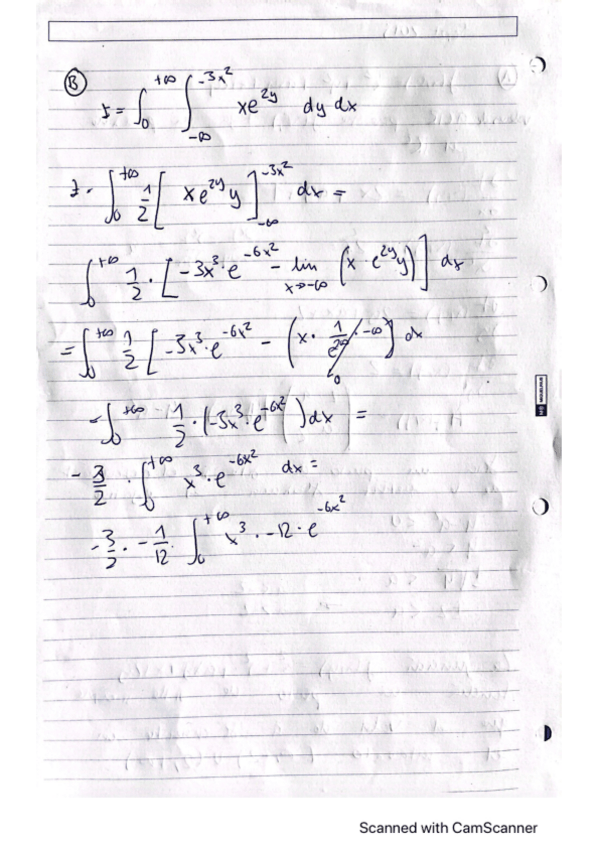 B
I = ∫_0^{+∞} ∫_{-∞}^{-3x²} xe^{2y} dy dx
I = ∫_0^{+∞} 1/2 [ xe^{2y} y ]_{-∞}^{-3x²} dx =
∫_0^{+∞} 1/2 · [ -3x³ · e^{-6x²} - lim_{x→-∞} (x · e^{2y} y) ] dx
= ∫_0^{+∞} 1/2 [ -3x³ · e^{-6x²} - (x · 1/e^{2∞} · -∞) ] dx
0
= ∫_0^{+∞} 1/2 · (-3x³ · e^{-6x²}) dx =
- 3/2 · ∫_0^{+∞} x³ · e^{-6x²} dx =
- 3/2 · - 1/12 · ∫_0^{+∞} x³ · -12 · e^{-6x²}
Scanned with CamScanner